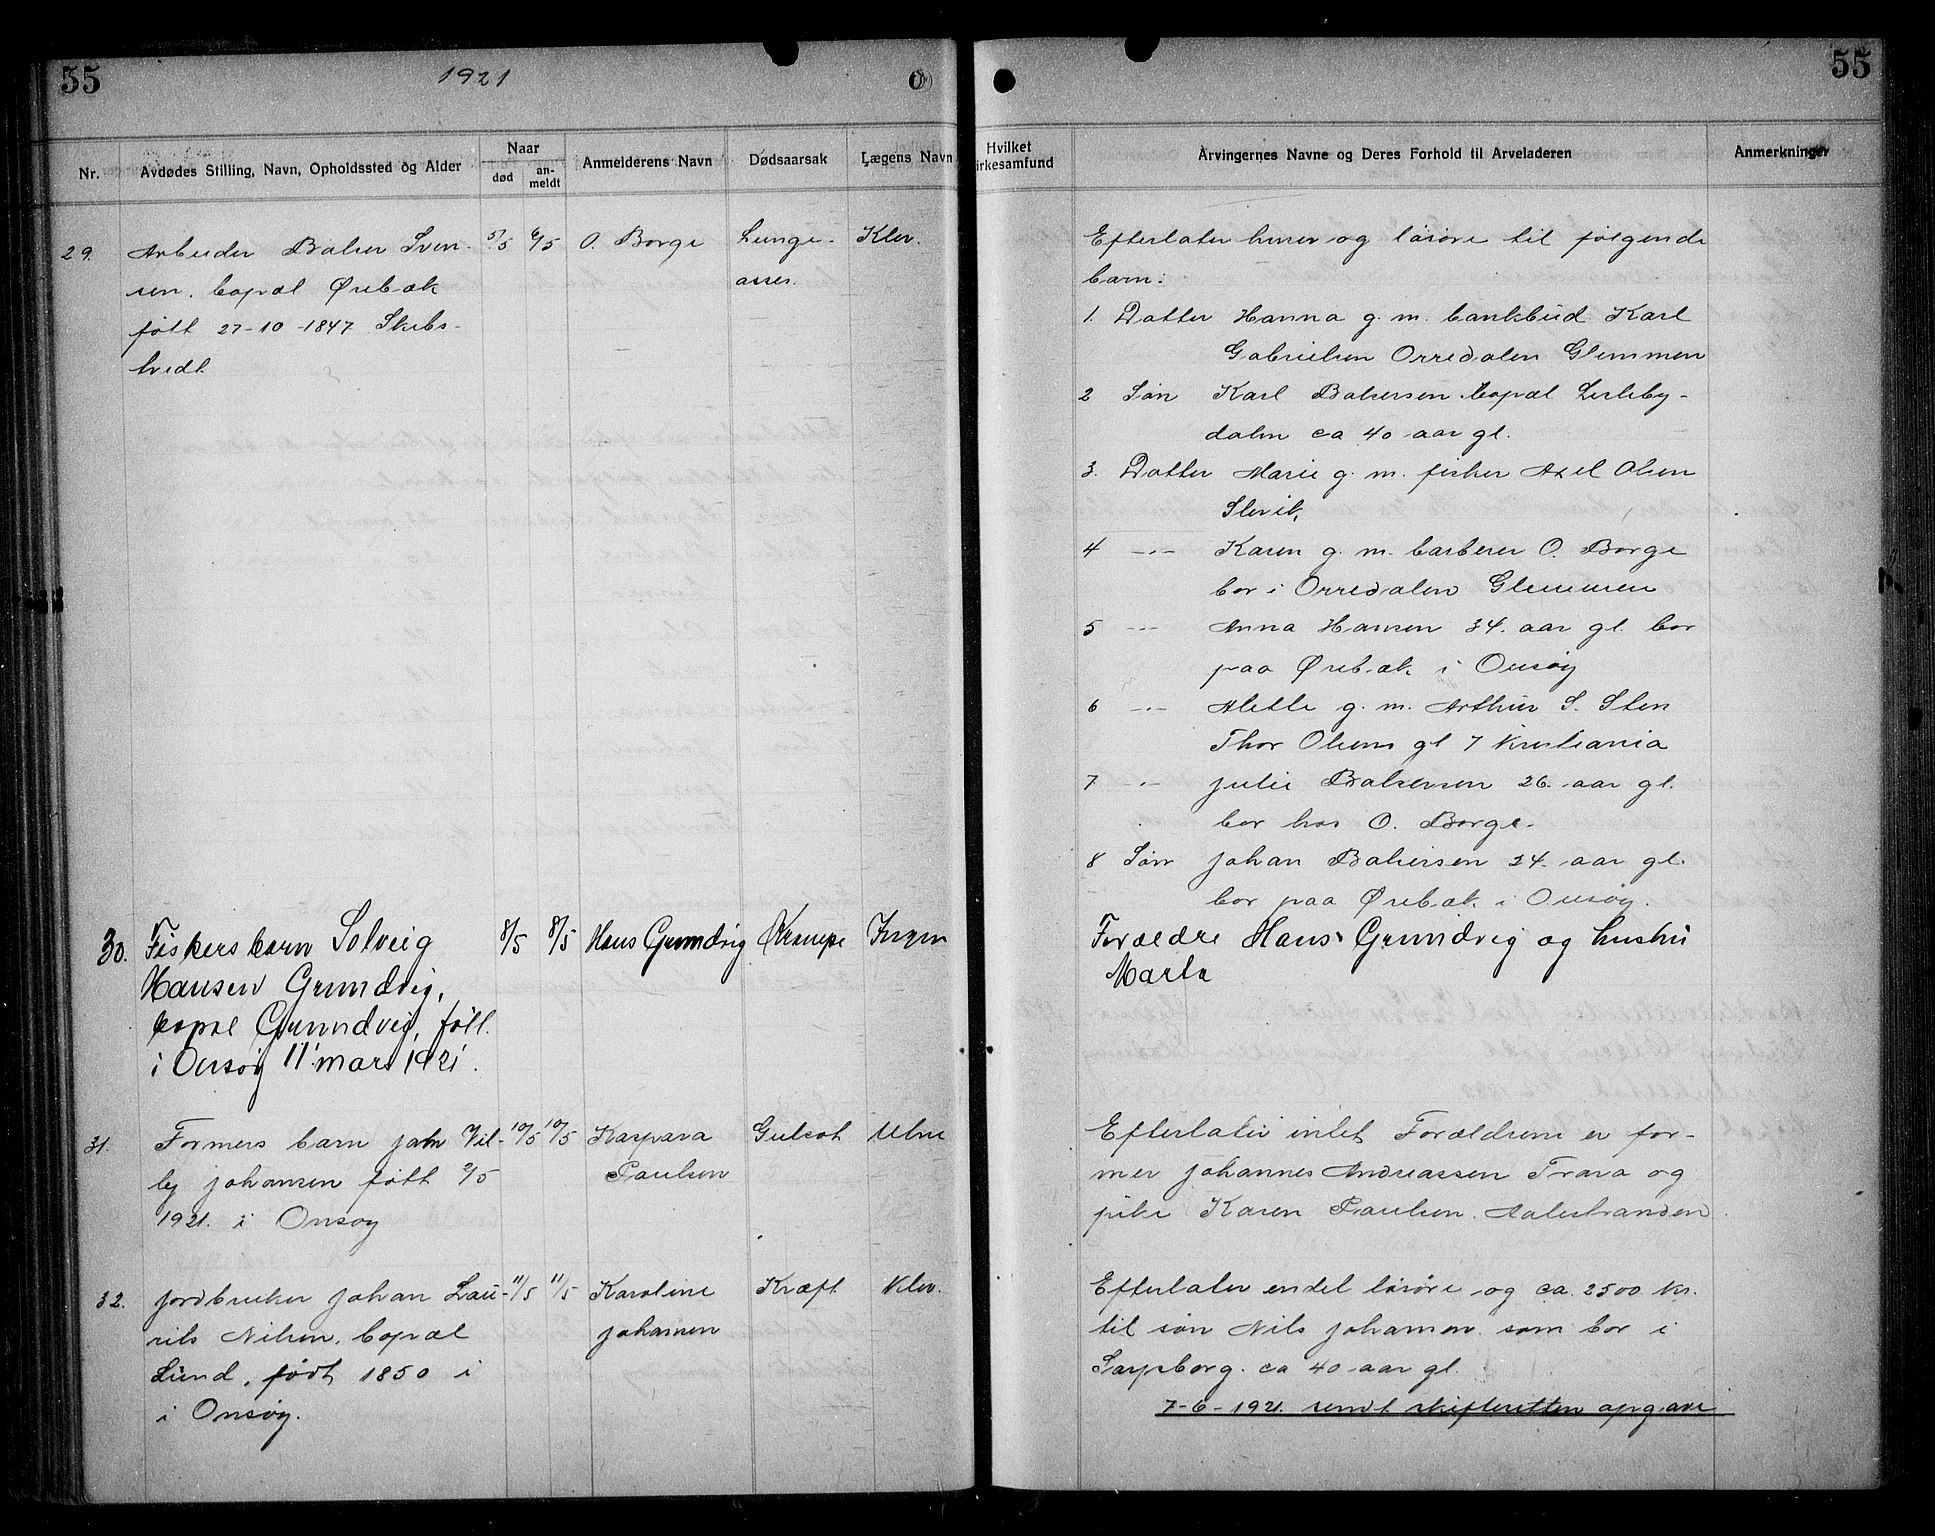 55
1921
55
Nr.
Avdødes Stilling, Navn, Opholdssted og Alder
Naar
død
an-
meldt
Anmelderens Navn
Dødsaarsak
Lægens Navn
Hvilket
irkesamfund
Arvingernes Navne og Deres Forhold til Arveladeren
Anmerkninger
29. Arbeider Balser Sven- 5/5 6/5 O. Borge Lunge- Klev.
sen. bopæl Ørebæk
født 27-10-1847 Skibs-
tvedt
Efterlater huser og løsøre til følgende
barn:
1. Datter Hanna g. m. bankbud Karl
Gabrielsen Orredalen Glemmen
2 Søn Karl Balsersen bopæl Lisleby-
dalen ca 40 aar gl.
3. Datter Marie g. m. fisker Axel Olsen
Slevik,
4 -"- Karen g. m. barberer O. Borge
bor i Orredalen Glemmen
5 -"- Anna Hansen 34. aar gl. bor
paa Ørebæk i Onsøy
6 -"- Alette g. m. Arthur S. Sten
Thor Olsens gt 7 Kristiania
7 -"- Julie Balsersen 26. aar gl.
bor hos O. Borge.
8 Søn Johan Balsersen 24. aar gl.
bor paa Ørebæk i Onsøy.
30. Fiskers barn Solveig 8/5 8/5 Hans Grundvig Krampe Ingen
Hansen Grundvig,
bopæl Grundvig, født
i Onsøy 11 mars 1921.
Forældre Hans Grundvig og hustru
Marta
31. Formers barn Jahn Vil- 10/5 10/5 Kaspara Gulsot Ulve
ly Johansen født 2/5 Paulsen
1921. i Onsøy
Efterlater intet Forældrene er for-
mer Johannes Andreassen Trara og
pike Karen Paulsen. Aalestranden.
32. Jordbruker Johan Lau- 11/5 11/5 Karoline Kræft Klev.
rits Nilsen, bopæl Johansen
Lund, født 1850 i
i Onsøy.
Efterlater endel løsøre og ca. 2500 kr.
til søn Nils Johansen som bor i
Sarpsborg. ca 40 aar gl.
7-6-1921. sendt skifteretten opgave